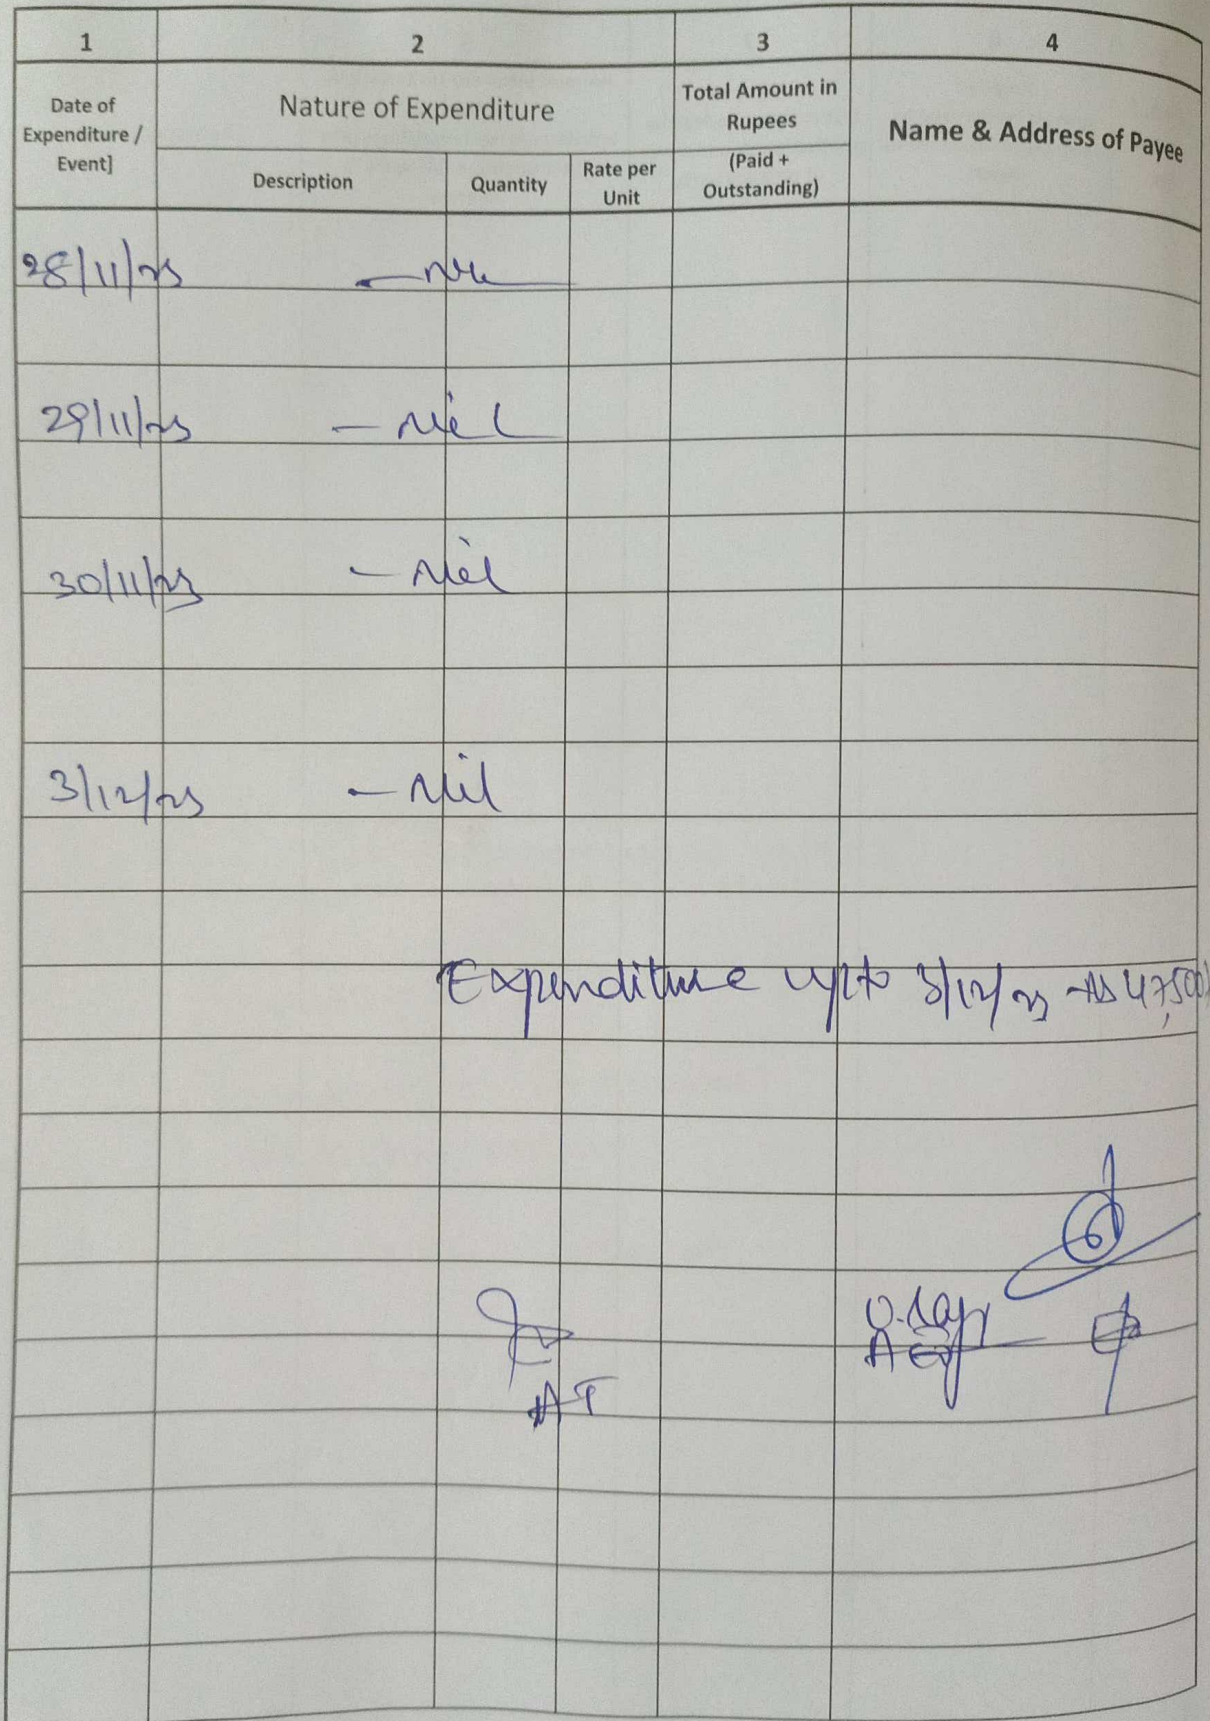 1 2 3 4
Date of
Expenditure /
Event]
Nature of Expenditure
Total Amount in
Rupees
Name & Address of Payee
Description
Quantity
Rate per
Unit
(Paid +
Outstanding)
28/11/23 - Nil
29/11/23 - Nil
30/11/23 - Nil
3/12/23 - Nil
Expenditure upto 3/12/23 Rs 47,500/
AT